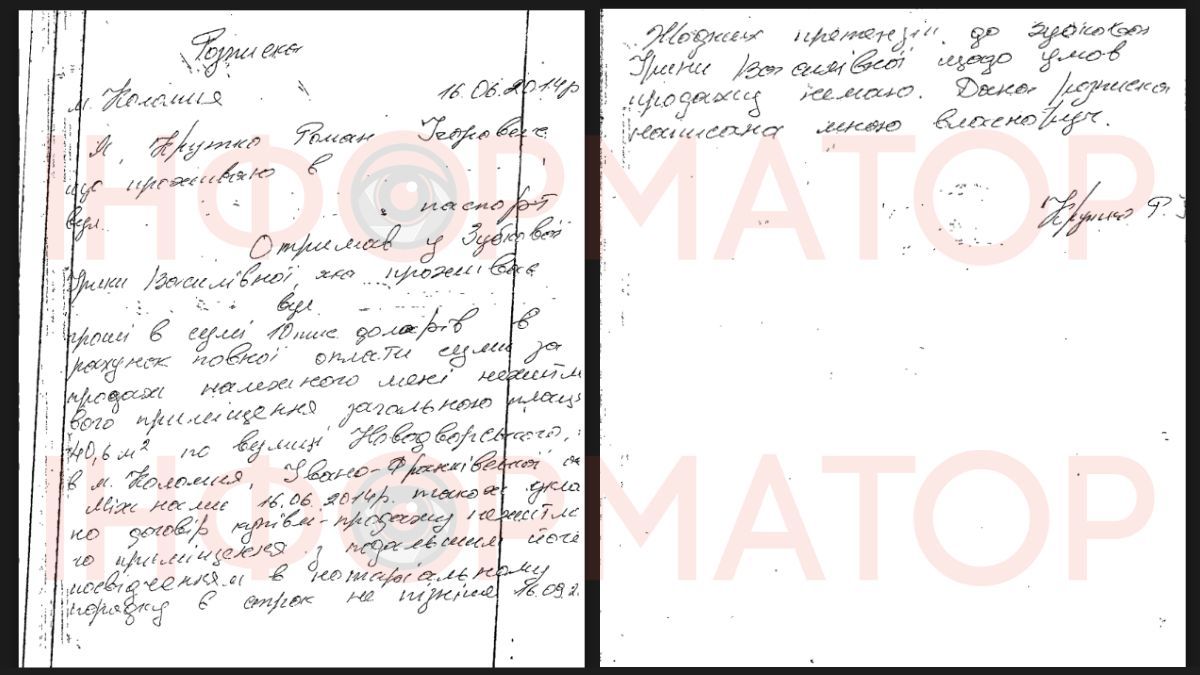 Розписка
м. Коломия 16.06.2014р
Я, Крутко Роман Ігорович
що проживаю в
вул. паспорт
Отримав у Зубкової
Ірини Василівної, яка проживає
вул
гроші в сумі 10 тис. доларів в
рахунок повної оплати суми за
продаж належного мені нежитл
вого приміщення загальною площ
40,6 м² по вулиці Новодворського,
в м. Коломия, Івано-Франківської
Між нами 16.06.2014р. також укла
но договір купівлі-продажу нежитло
го приміщення з подальшим його
посвідченням в нотаріальному
порядку в строк не пізніше 16.09.2
Жодних претензій до Зубкової
Ірини Василівної щодо умов
продажу немаю. Дана розписка
написана мною власноруч.
Крутко Р. І
ІНФОРМАТОР
ІНФОРМАТОР